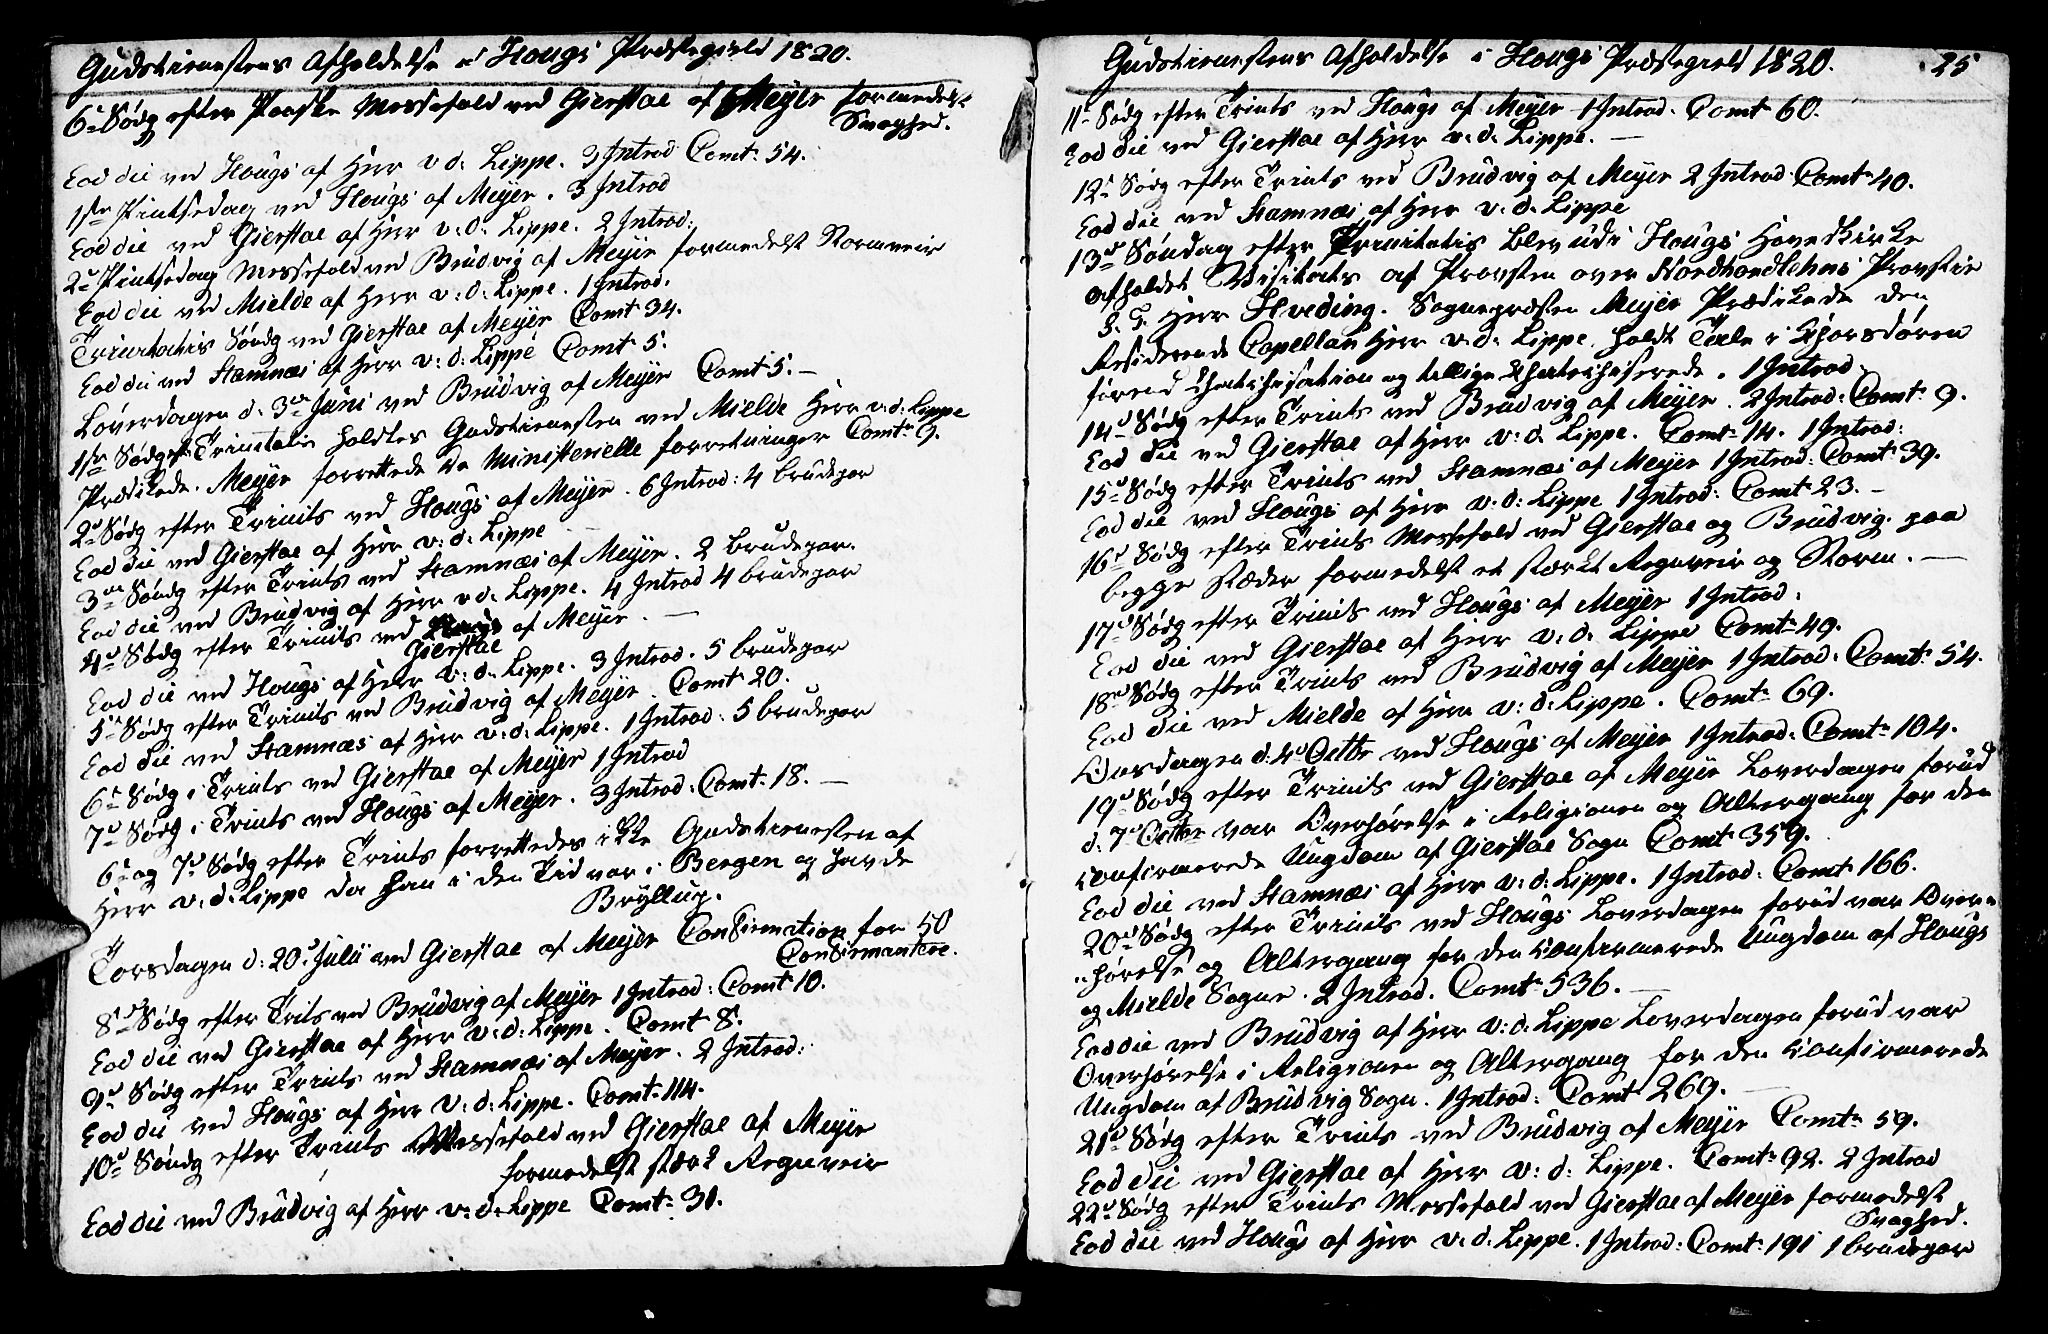 Gudstienestens Afholdelse i Hougs Præstegield 1820.
6te Søndg efter Paaske Messefald ved Gierstae af Meyer formedelst
Svaghed.
Eod die ved Hougs af Herr v. d. Lippe. 3 Introd Comt 54.
1ste Pintsedag ved Hougs af Meyer. 3 Introd
Eod die ved Gierstae af Herr v: d: Lippe. 2 Introd:
2d Pintsedag Messefald ved Brudvig af Meyer formedelst Stormveir
Eod die ved Mielde af Herr v: d: Lippe. 1 Introd.
Trinitatis Søndg ved Gierstae af Meyer Comt 34.
Eod die ved Stamnæs af Herr v: d: Lippe Comt 5.
Løverdagen d. 3de Juni ved Brudvig af Meyer Comt 5. —
1ste Sødg eft Trinitatis holdtes Gudstienesten ved Mielde Herr v. d. Lippe
Prædikede. Meyer forrettede de Ministerielle forretninger Comt 9.
2d Sødg efter Trinits ved Hougs af Meyer. 6 Introd: 4 brudepar
Eod die ved Gierstae af Herr v: d: Lippe —
3die Søndg efter Trinits ved Stamnæs af Meyer. 2 brudepar.
Eod die ved Brudvig af Herr v d: Lippe. 4 Introd 4 brudepar
4de Sødg efter Trinits ved Gierstae af Meyer. —
Eod die ved Hougs af Herr v: d. Lippe. 3 Introd. 5 brudepar
5te Sødg efter Trinits ved Brudvig af Meyer. Comt 20.
Eod die ved Stamnæs af Herr v: d: Lippe. 1 Introd: 5 brudepar
6te Sødg i Trinits ved Gierstae af Meyer 1 Introd
7de Sødg i Trinits ved Hougs af Meyer. 3 Introd. Comt. 18. —
6te og 7de Sødg efter Trinits forrettedes ikke Gudstienesten af
Herr v. d. Lippe da han i den Tid var i Bergen og havde
Bryllup.
Torsdagen d: 20de Julii ved Gierstae af Meyer Confirmation for 50
Confirmantere.
8de Sødg efter Trits ved Brudvig af Meyer 1 Introd: Comt 10.
Eod die ved Gierstae af Herr v: d: Lippe. Comt 8.
9de Sødg efter Trinits ved Stamnæs af Meyer. 2 Introd:
Eod die ved Hougs af Herr v: d: Lippe. Comt 114.
10de Søndg efter Trinits Messefald ved Gierstae af Meyer
formedelst stærk Regnveir
Eod die ved Brudvig af Herr v: d. Lippe Comt. 31.
Gudstienestens Afholdelse i Hougs Præstegield 1820. 25
11te Sødg efter Trinits ved Hougs af Meyer 1 Introd. Comt 60.
Eod die ved Gierstae af Herr v. d. Lippe. —
12te Sødg efter Trinits ved Brudvig af Meyer 2 Introd. Comt 40.
Eod die ved Stamnæs af Herr v. d. Lippe
13de Søndag efter Trinitatis blev udi Hougs Hovedkirke
afholdet Visitats af Provsten over Nordhordlehns Provstie
S. T. Herr Hveding. Sognepræsten Meyer Prædikede den
Residerende Capellan Herr v. d. Lippe holdt Tale i Chorsdøren
førend Chatechisation og tillige Chatechiserede. 1 Introd.
14de Sødg efter Trinits ved Brudvig af Meyer. 2 Introd: Comt 9.
Eod die ved Gierstae af Herr v: d. Lippe. Comt 14. 1 Introd:
15de Sødg efter Trinits ved Stamnæs af Meyer 1 Introd: Comt 39.
Eod die ved Hougs af Herr v: d: Lippe 1 Introd: Comt 23. —
16de Sødg efter Trinits Messefald ved Gierstae og Brudvig paa
begge Stæder formedelst et stærkt Regnveir og Storm. —
17de Sødg efter Trinits ved Hougs af Meyer 1 Introd:
Eod die ved Gierstae af Herr v: d. Lippe Comt 49.
18de Sødg efter Trinits ved Brudvig af Meyer 1 Introd: Comt 54.
Eod die ved Mielde af Herr v: d: Lippe. Comt 69.
Onsdagen d. 4de Octbr ved Hougs af Meyer 1 Introd: Comt 104.
19de Sødg efter Trinits ved Gierstae af Meyer Løverdagen forud
d. 7de Octbr var Overhørelse i Religionen og Altergang for den
confirmerede Ungdom af Gierstae Sogn Comt 359.
Eod die ved Stamnæs af Herr v: d: Lippe. 1 Introd: Comt 166.
20de Sødg efter Trinits ved Hougs Løverdagen forud var Over-
hørelse og Altergang for den confirmerede Ungdom af Hougs
og Mielde Sogne. 2 Introd. Comt 536. —
Eod die ved Brudvig af Herr v: d: Lippe Løverdagen forud var
Overhørelse i Religionen og Altergang for den confirmerede
Ungdom af Brudvig Sogn. 1 Introd: Comt 269. —
21de Sødg efter Trinits ved Brudvig af Meyer Comt 59.
Eod die ved Gierstae af Herr v: d: Lippe. Comt 92. 2 Introd
22de Sødg efter Trinits Messefald ved Gierstae af Meyer formedelst
Svaghed.
Eod die ved Hougs af Herr v. d. Lippe. 1 Introd: Comt 191 1 brudepar